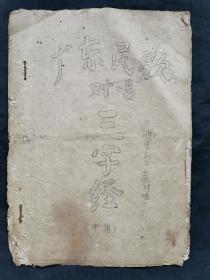 广东民歌
对唱
三字经
(中集)